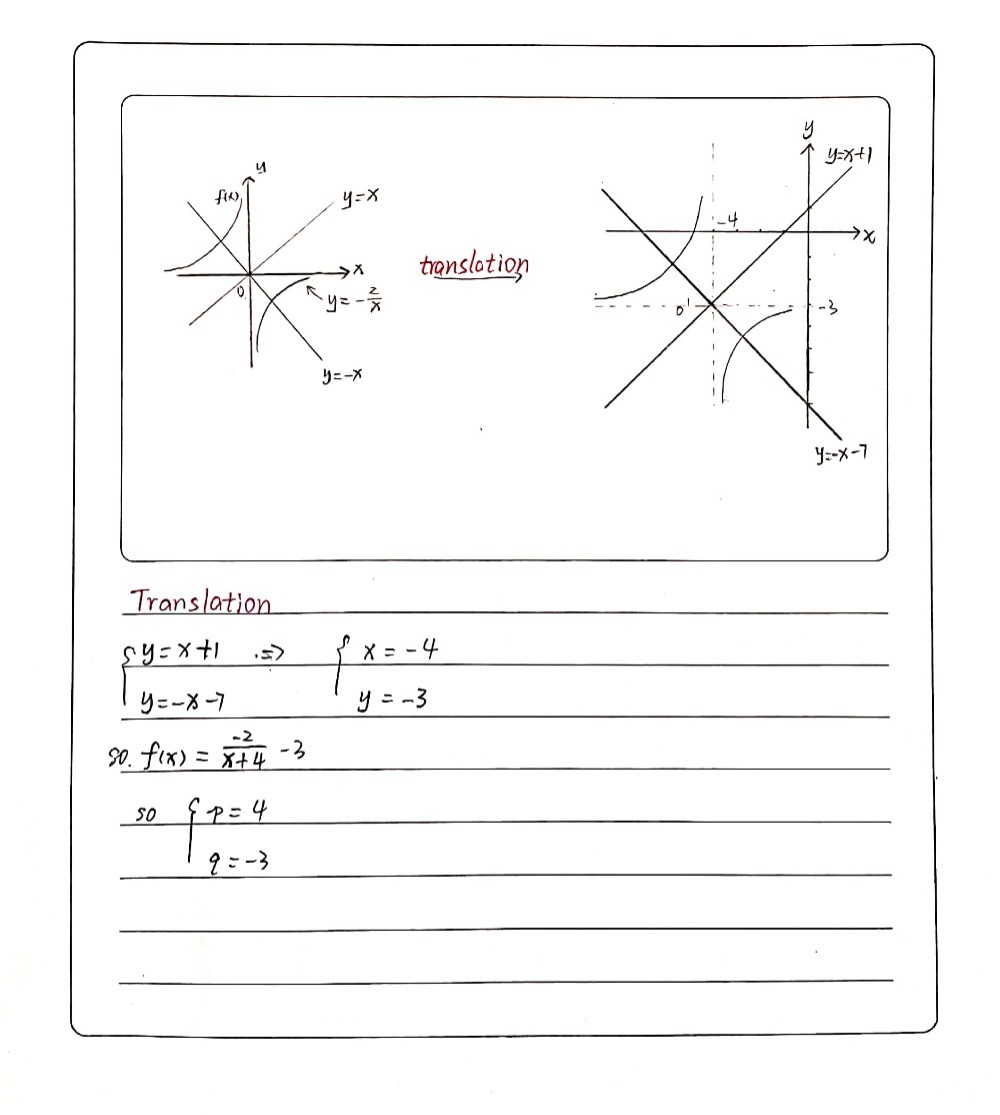 y
f(x)
y=x
x
0
y=-2/x
y=-x
translation
y
y=x+1
-4
x
0'
-3
y=-x-7
Translation
{ y=x+1 => { x=-4
y=-x-7 y=-3
so. f(x) = -2/(x+4) -3
so { p=4
q=-3